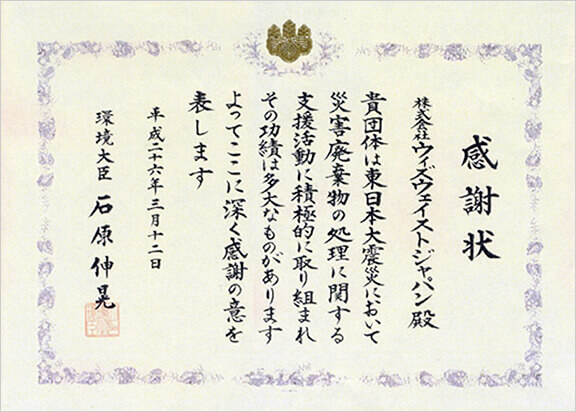 感謝状
株式会社ウィズウェイストジャパン殿
貴団体は東日本大震災において
災害廃棄物の処理に関する
支援活動に積極的に取り組まれ
その功績は多大なものがあります
よってここに深く感謝の意を
表します
平成二十六年三月十二日
環境大臣 石原伸晃